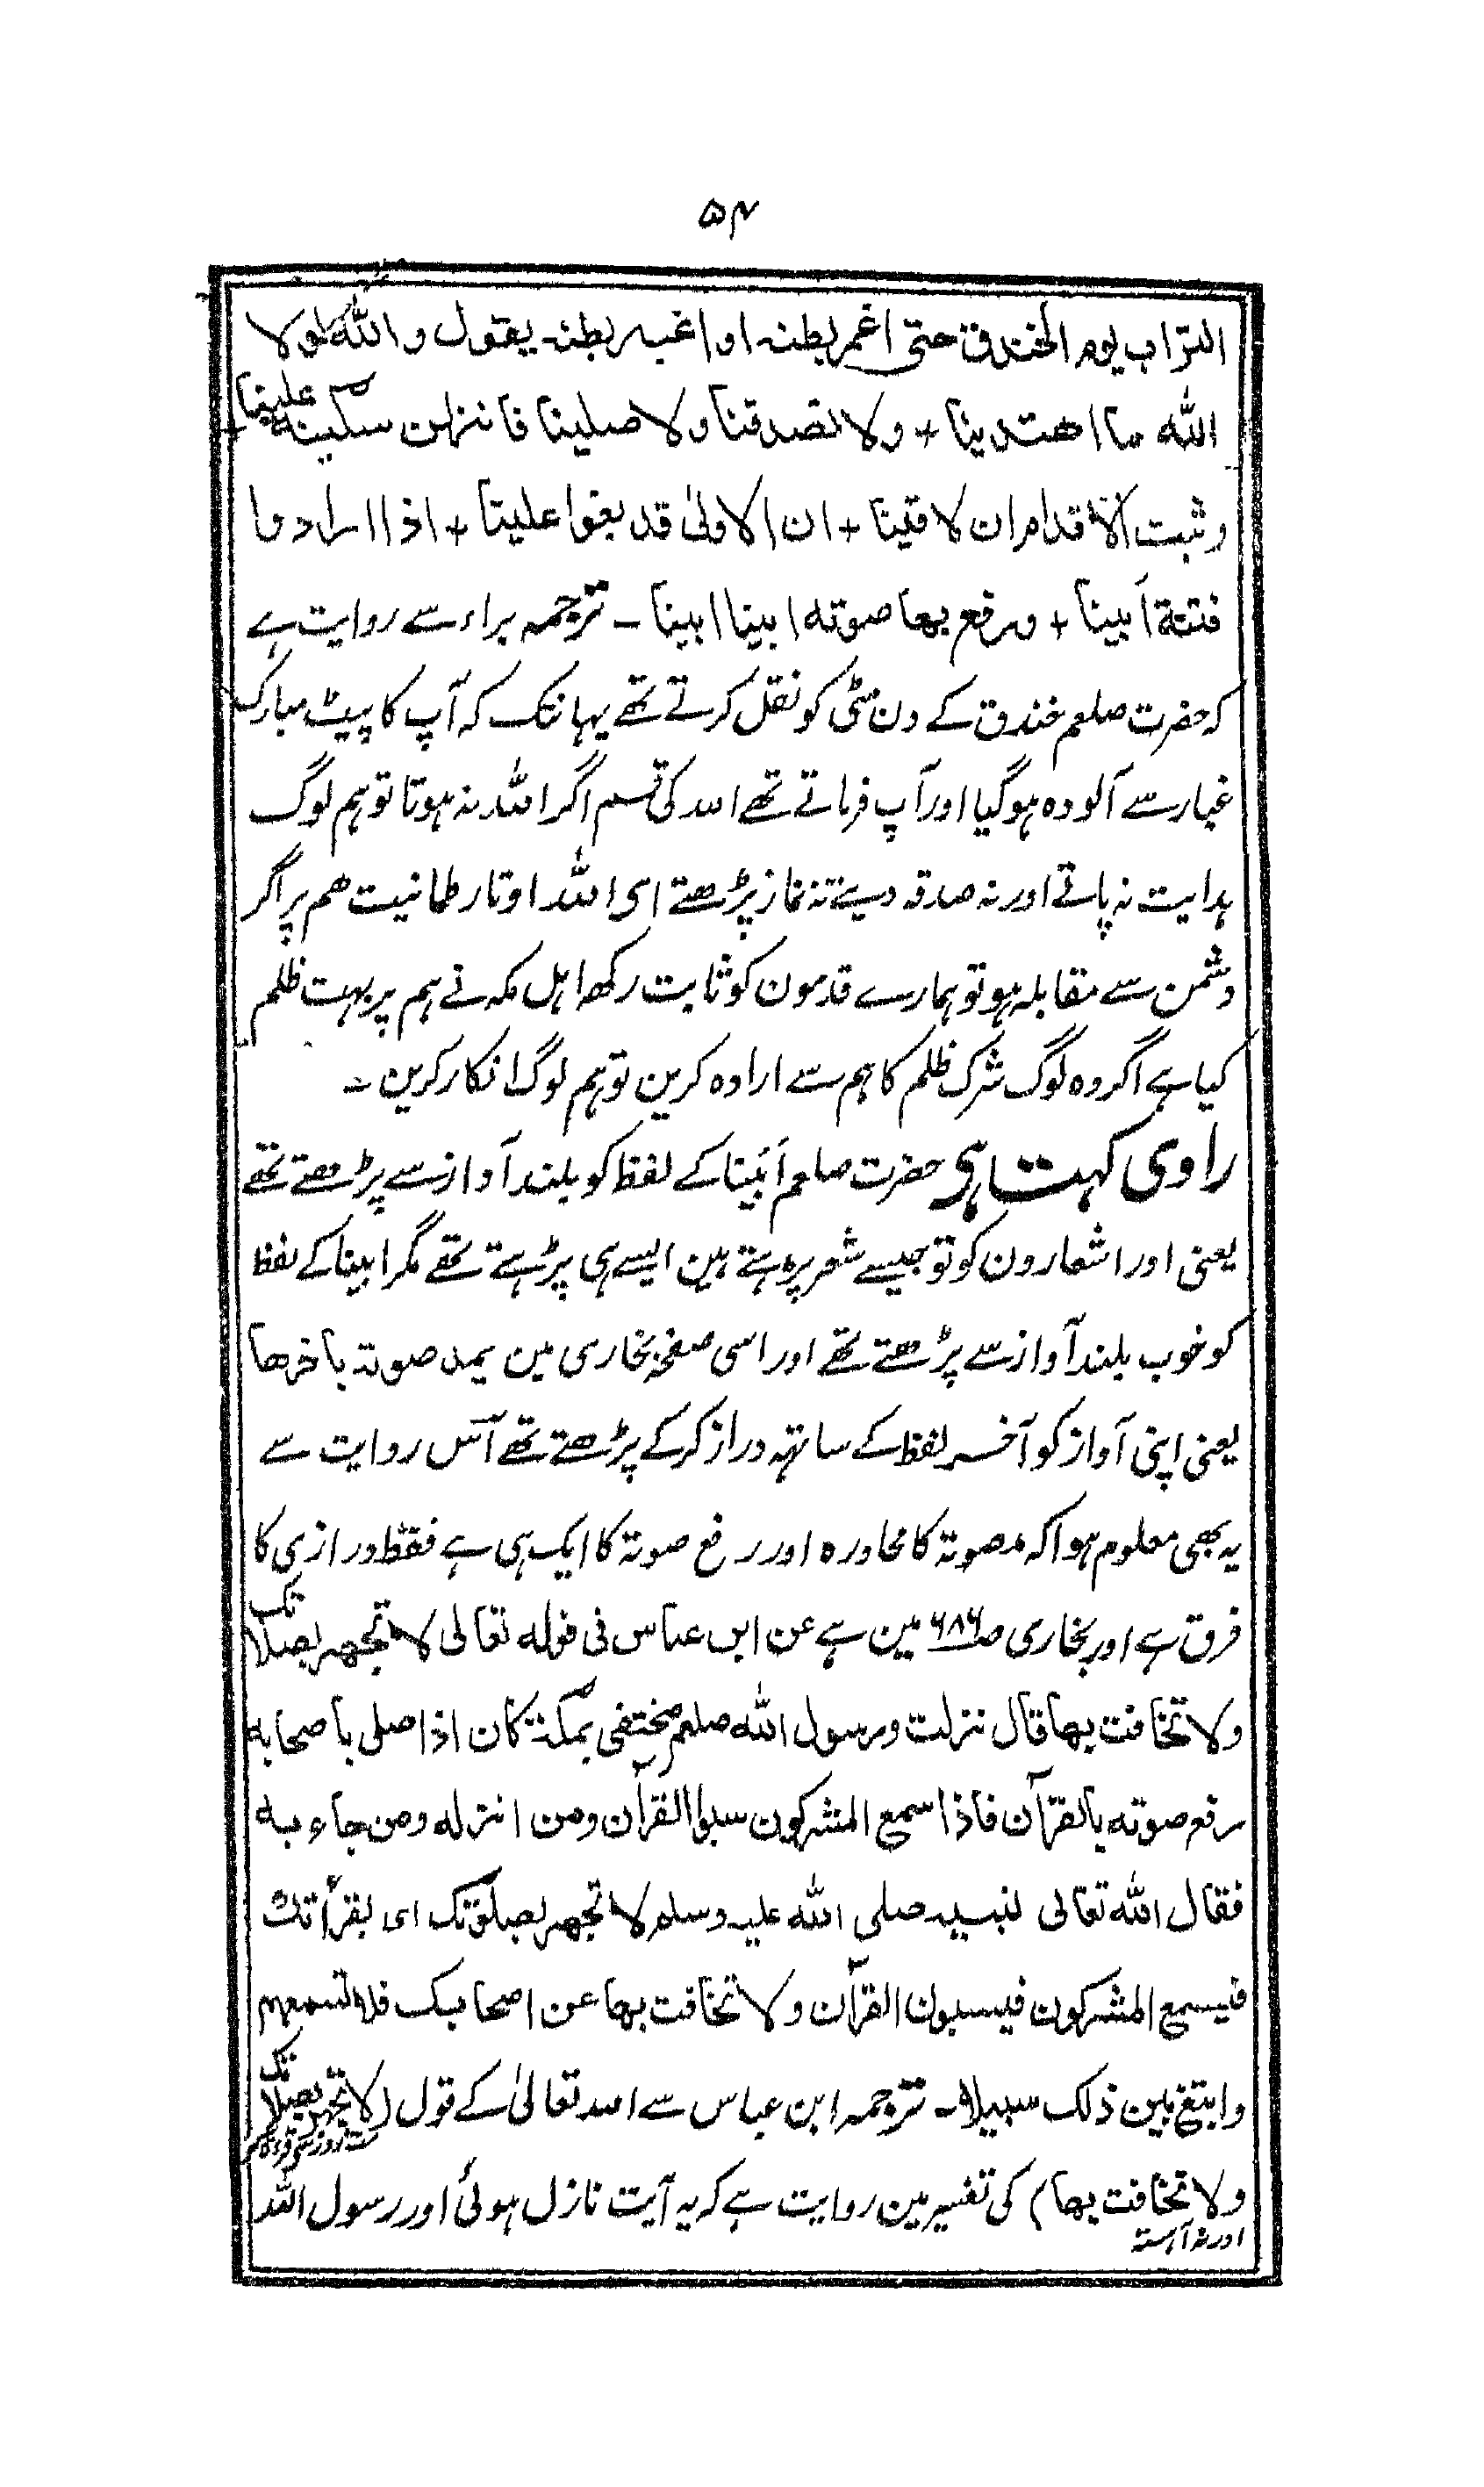 ۵۴
التراب یوم الخندق حتی اغمر بطنہ او اغبر بطنہ یقول واللہ لولا
اللہ ما اھتدینا + ولا تصدقنا ولا صلینا فانزلن سکینة علینا +
وثبت الاقدام ان لاقینا + ان الاولیٰ قد بغوا علینا + اذا ارادوا
فتنة اَبینا + ورفع بھا صوته ابینا ابینا ـ ترجمہ براء سے روایت ہے
کہ حضرت صلعم خندق کے دن مٹی کو نقل کرتے تھے یہانتک کہ آپ کا پیٹ مبارک
غبار سے آلودہ ہوگیا اور آپ فرماتے تھے اللہ کی قسم اگر اللہ نہ ہوتا تو ہم لوگ
ہدایت نہ پاتے اور نہ صدقہ دیتے نہ نماز پڑھتے ای اللہ اوتار طمانیت ھم پر اگر
دشمن سے مقابلہ ہو تو ہمارے قدمون کو ثابت رکھ اہل مکہ نے ہم پر بہت ظلم
کیا ہے اگر وہ لوگ شرک ظلم کا ہم سے ارادہ کرین تو ہم لوگ انکار کرین ـ
راوی کہتا ہی حضرت صلعم اَبَینا کے لفظ کو بلند آواز سے پڑھتے تھے
یعنی اور اشعارون کو تو جیسے شعر پڑہتے ہین ایسے ہی پڑہتے تھے مگر ابینا کے لفظ
کو خوب بلند آواز سے پڑھتے تھے اور اسی صفحۂ بخاری مین یمد صوتہ باخرھا
یعنی اپنی آواز کو آخر لفظ کے ساتہہ دراز کرکے پڑھتے تھے اس روایت سے
یہ بھی معلوم ہوا کہ مد صوتہ کا محاورہ اور رفع صوتہ کا ایک ہی ہے فقط درازی کا
فرق ہے اور بخاری صـ۶۸۶ مین ہے عن ابن عباس فی قوله تعالی لا تجھر بصلاتک
ولا تخافت بھا قال نزلت ورسول اللہ صلعم مختفی بمکة کان اذا صلی باصحابه
رفع صوته بالقرآن فاذا سمع المشرکون سبوا القرآن ومن انزله ومن جاء به
فقال اللہ تعالی لنبیه صلی اللہ علیہ وسلم لا تجھر بصلوٰتک ای بقرأتک
فیسمع المشرکون فیسبون القرآن ولا تخافت بھا عن اصحابک فلا تسمعھم
وابتغ بین ذلک سبیلا ـ ترجمہ ابن عباس سے اللہ تعالیٰ کے قول (لا تجھر بصلاتک
ولا تخافت بھا) کی تفسیر مین روایت ہے کہ یہ آیت نازل ہوئی اور رسول اللہ
اور نہ آہستہ